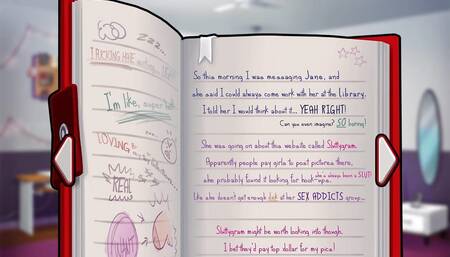 zzz...
I FRICKING HATE
I'm like, super
LOVING
REAL
So this morning I was messaging Jane, and
she said I could always come work with her at the Library.
I told her I would think about it... YEAH RIGHT!
Can you even imagine? SO boring!
She was going on about this website called Sluttygram.
Apparently people pay girls to post pictures there,
she probably found it looking for hook-ups. she's always been a SLUT!
Like she doesn't get enough dick at her SEX ADDICTS group...
Sluttygram might be worth looking into though.
I bet they'd pay top dollar for my pics!